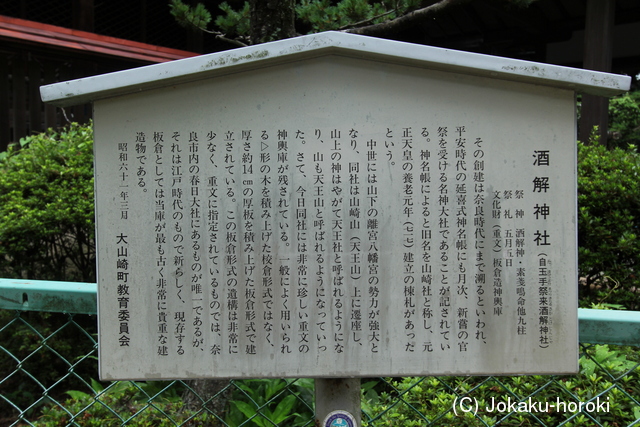 酒解神社(自玉手祭来酒解神社)
祭神 酒解神・素戔嗚命他九柱
祭礼 五月五日
文化財(重文)板倉造神輿庫
その創建は奈良時代にまで溯るといわれ、
平安時代の延喜式神名帳にも月次、新嘗の官
祭を受ける名神大社であることが記されてい
る。神名帳によると旧名を山崎社と称し、元
正天皇の養老元年(七一七)建立の棟札があった
という。
中世には山下の離宮八幡宮の勢力が強大と
なり、同社は山崎山(天王山)上に遷座し、
山上の神はやがて天王社と呼ばれるようにな
り、山も天王山と呼ばれるようになっていっ
た。さて、今日同社には非常に珍しい重文の
神輿庫が残されている。一般によく用いられ
る▷形の木を積み上げた校倉形式ではなく、
厚さ約14㎝の厚板を積み上げた板倉形式で建
立されている。この板倉形式の遺構は非常に
少なく、重文に指定されているものでは、奈
良市内の春日大社にあるものが唯一であるが、
それは江戸時代のもので新らしく、現存する
板倉としては当庫が最も古く非常に貴重な建
造物である。
昭和六十一年三月 大山崎町教育委員会
(C) Jokaku-horoki